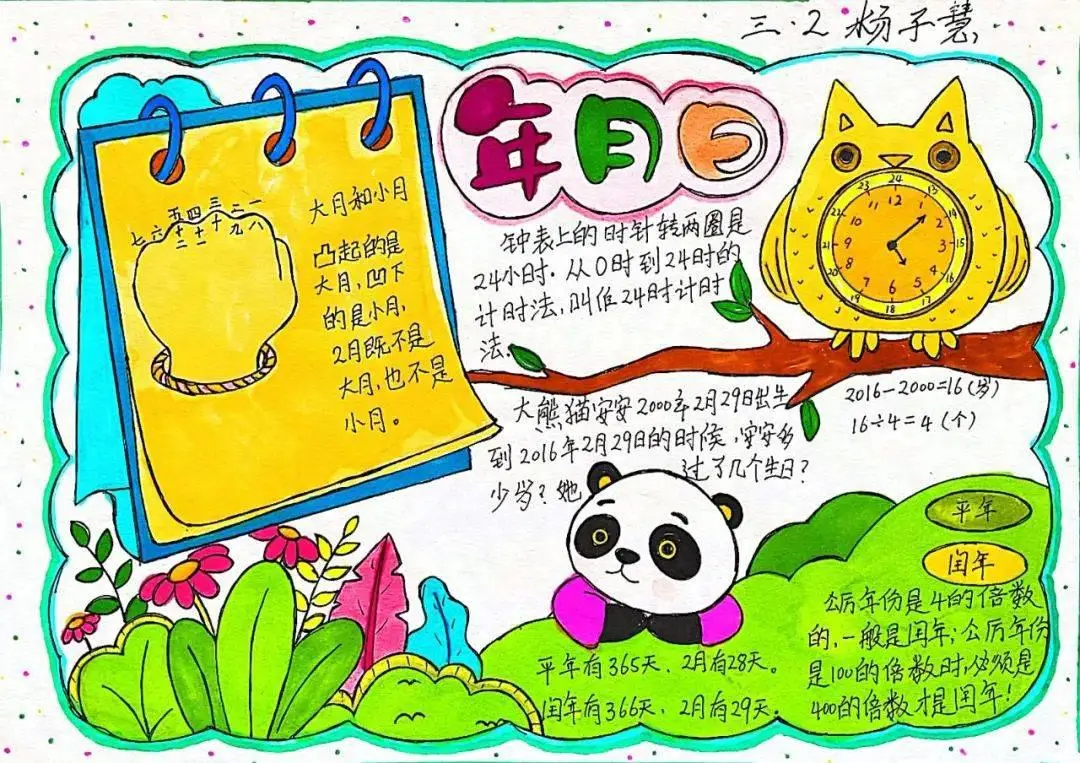 三·2 杨子慧
年月日
大月和小月
凸起的是
大月，凹下
的是小月，
2月既不是
大月，也不是
小月。
五 四 三 二 一
七 六 十二 十一 十 九 八
钟表上的时针转两圈是
24小时. 从0时到24时的
计时法，叫作24时计时
法.
24 13 14 15 16 17 18 19 20 21 22 23
12 1 2 3 4 5 6 7 8 9 10 11
大熊猫安安2000年2月29日出生
到2016年2月29日的时候，安安多
少岁？她过了几个生日？
2016-2000=16(岁)
16÷4=4(个)
平年
闰年
公历年份是4的倍数
的，一般是闰年；公历年份
是100的倍数时，必须是
400的倍数才是闰年！
平年有365天、2月有28天。
闰年有366天、2月有29天。